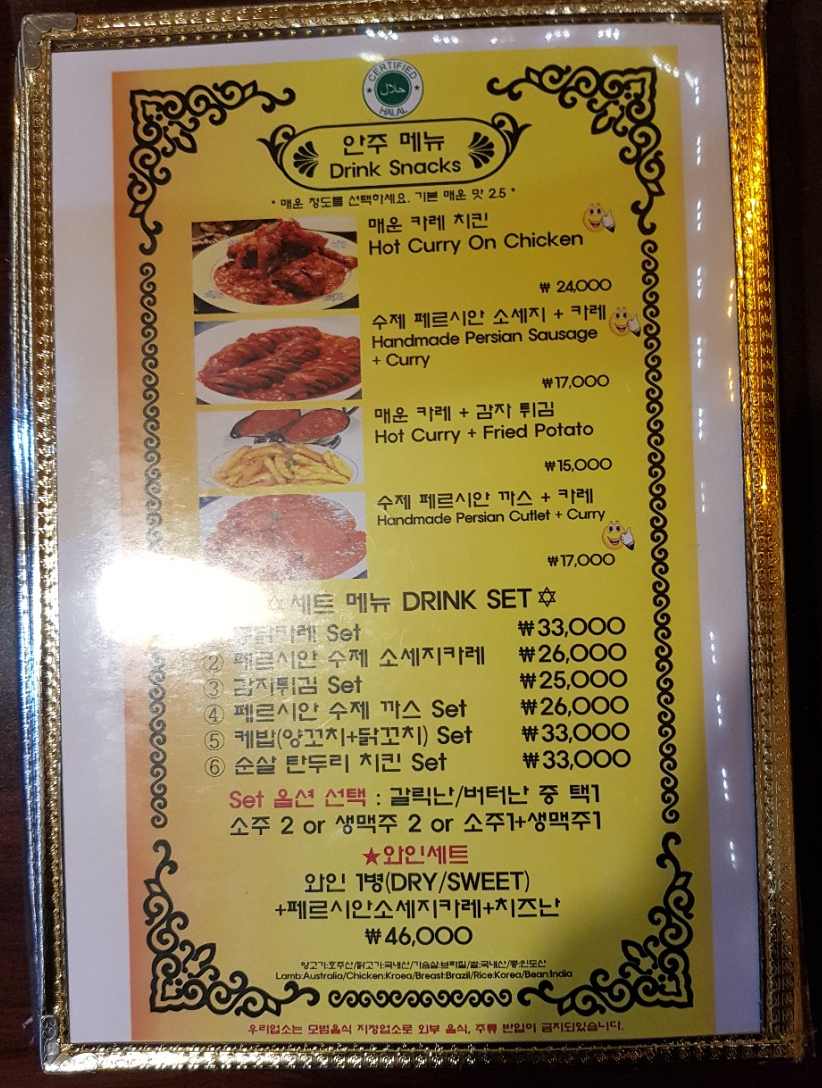 CERTIFIED
حلال
HALAL
안주 메뉴
Drink Snacks
* 매운 정도를 선택하세요. 기본 매운 맛 2.5 *
매운 카레 치킨
Hot Curry On Chicken
₩ 24,000
수제 페르시안 소세지 + 카레
Handmade Persian Sausage
+ Curry
₩17,000
매운 카레 + 감자 튀김
Hot Curry + Fried Potato
₩15,000
수제 페르시안 까스 + 카레
Handmade Persian Cutlet + Curry
₩17,000
세트 메뉴 DRINK SET ✡
Set ₩33,000
② 페르시안 수제 소세지카레 ₩26,000
③ 감자튀김 Set ₩25,000
④ 페르시안 수제 까스 Set ₩26,000
⑤ 케밥(양꼬치+닭꼬치) Set ₩33,000
⑥ 순살 탄두리 치킨 Set ₩33,000
Set 옵션 선택 : 갈릭난/버터난 중 택1
소주 2 or 생맥주 2 or 소주1+생맥주1
★와인세트
와인 1병(DRY/SWEET)
+페르시안소세지카레+치즈난
₩46,000
양고기:호주산/닭고기:국내산/가슴살:브라질/쌀:국내산/콩:인도산
Lamb:Australia/Chicken:Kroea/Breast:Brazil/Rice:Korea/Bean:India
우리업소는 모범음식 지정업소로 외부 음식, 주류 반입이 금지되있습니다.